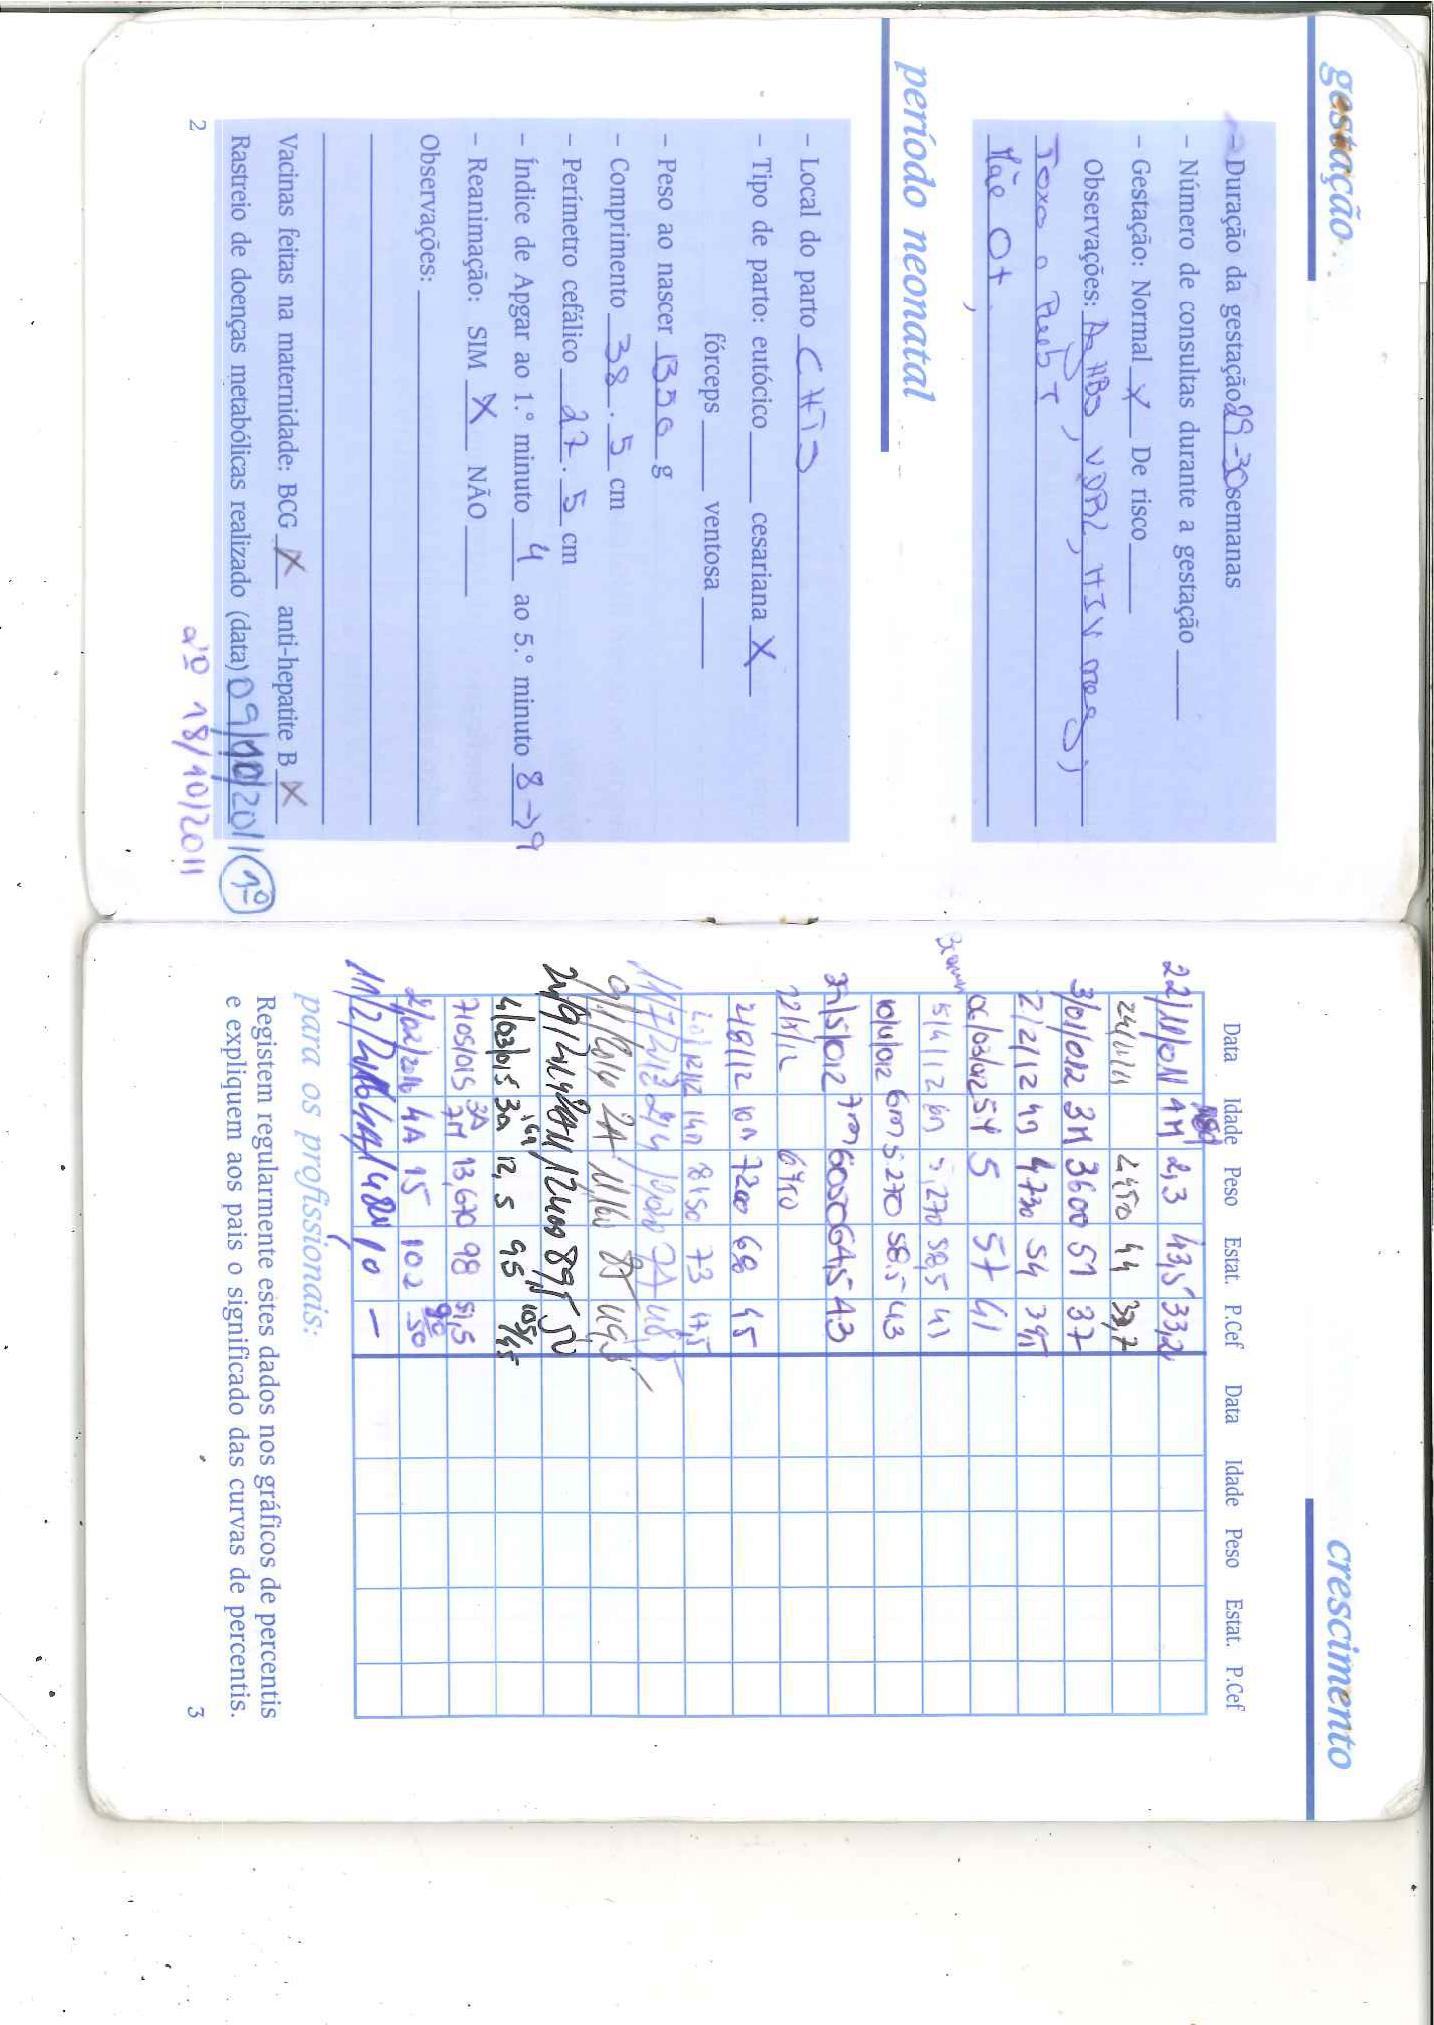 gestação
Duração da gestação 29-30 semanas
- Número de consultas durante a gestação
- Gestação: Normal X De risco
Observações: AgHBs, VDRL, HIV neg,
Toxo o
Mãe O+,
período neonatal
- Local do parto
- Tipo de parto: eutócico cesariana X
fórceps ventosa
- Peso ao nascer g
- Comprimento 38.5 cm
- Perímetro cefálico 27.5 cm
- Índice de Apgar ao 1.º minuto 4 ao 5.º minuto 8→9
- Reanimação: SIM X NÃO
Observações:
Vacinas feitas na maternidade: BCG X anti-hepatite B X
Rastreio de doenças metabólicas realizado (data) 09/10/2011 1º
2º 18/10/2011
2
crescimento
Data Idade Peso Estat. P.Cef Data Idade Peso Estat. P.Cef
22/11/011 1M 2,3 43,5 33,2
2450 44 33,7
3/01/012 3M 3600 51 37
2/2/12 4m 4730 54 39,5
06/03/012 5M 5 57 41
15/4/12 6m 5,270 58,5 43
10/4/012 6m 5.270 58.5 43
31/5/012 7m 6050 64,5 43
6710
2/8/12 10m 7200 68 45
12/12 14m 8450 73 47,5
11/7/2013
2A 85 49,5
89,5 50
4/03/015 3a 12,5 95 105/45
7/05/015 3A 7M 13,670 98 51,5
2/02/2016 4A 15 102 50
11/2/2016 4A –
para os profissionais:
Registem regularmente estes dados nos gráficos de percentis
e expliquem aos pais o significado das curvas de percentis.
3